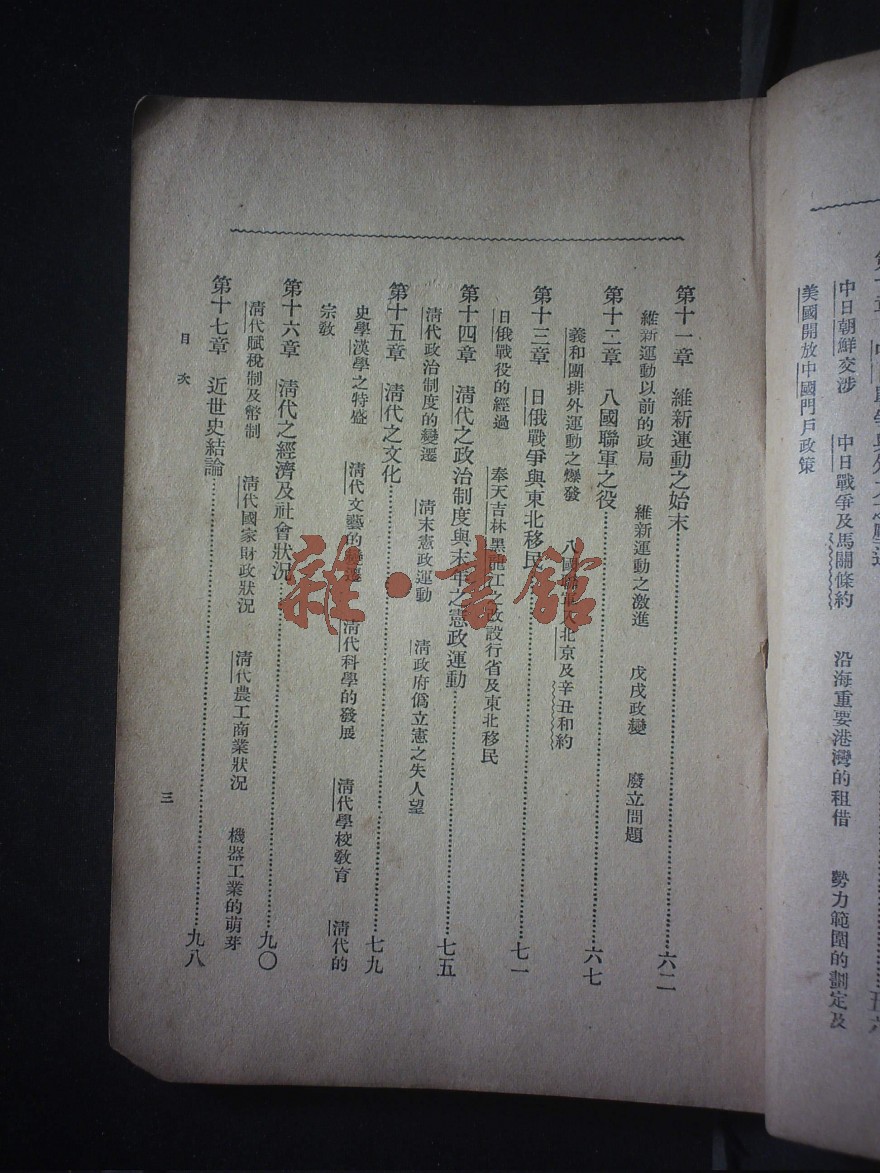 中日朝鮮交涉　中日戰爭及馬關條約　沿海重要港灣的租借　勢力範圍的劃定及
美國開放中國門戶政策
第十一章　維新運動之始末……六二
維新運動以前的政局　維新運動之激進　戊戌政變　廢立問題
第十二章　八國聯軍之役……六七
義和團排外運動之爆發　八國聯軍入北京及辛丑和約
第十三章　日俄戰爭與東北移民……七一
日俄戰役的經過　奉天吉林黑龍江之改設行省及東北移民
第十四章　清代之政治制度與末年之憲政運動……七五
清代政治制度的變遷　清末憲政運動　清政府僞立憲之失人望
第十五章　清代之文化……七九
史學漢學之特盛　清代文藝的變遷　清代科學的發展　清代學校敎育　清代的
宗敎
第十六章　清代之經濟及社會狀況……九〇
清代賦稅制及幣制　清代國家財政狀況　清代農工商業狀況　機器工業的萌芽
第十七章　近世史結論……九八
目次
三
雜·書館